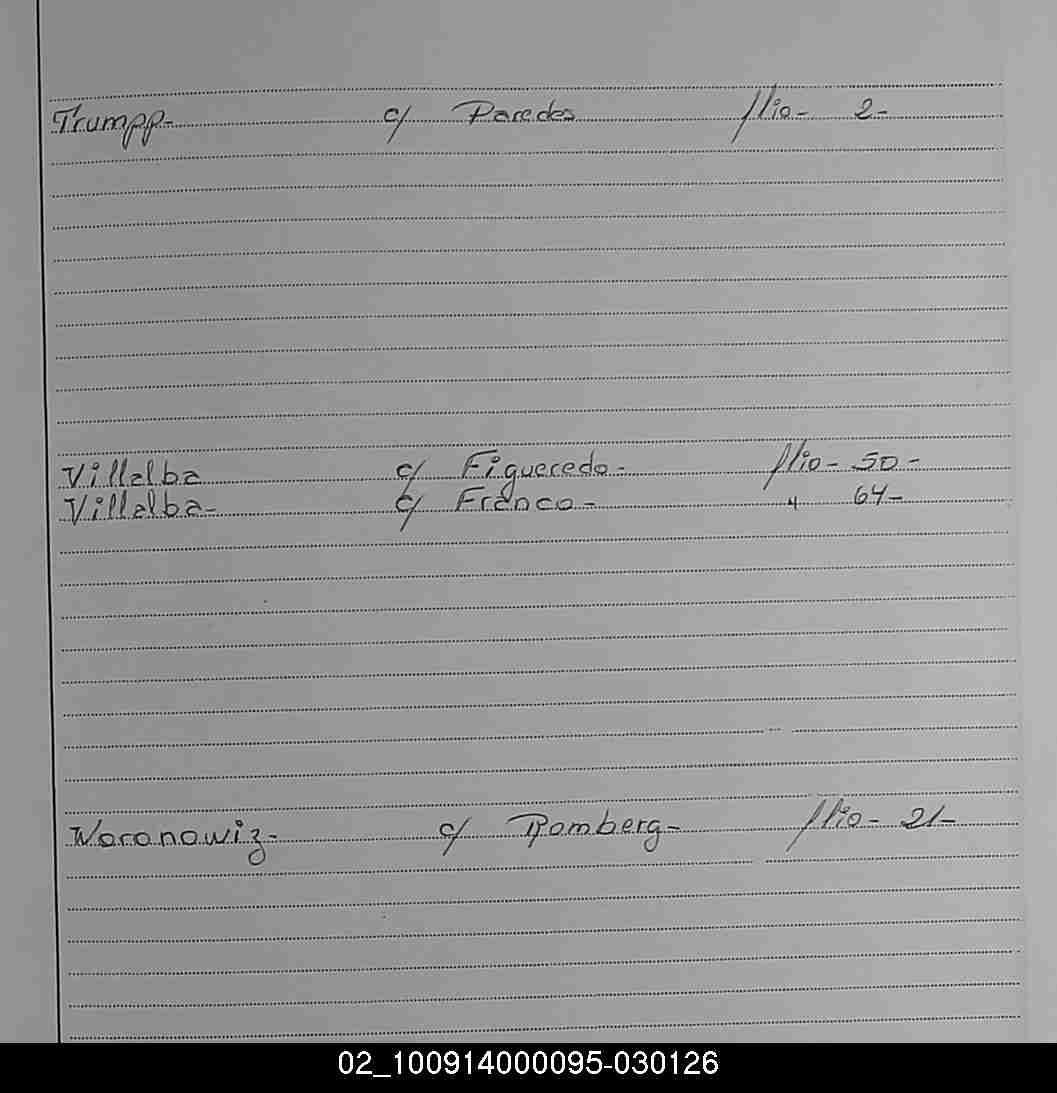 Trumpp- c/ Paredes flio- 2-
Villalba c/ Figueredo- flio- 50-
Villalba- c/ Franco- " 64-
Woronowiz- c/ Romberg- flio- 21-
02_100914000095-030126